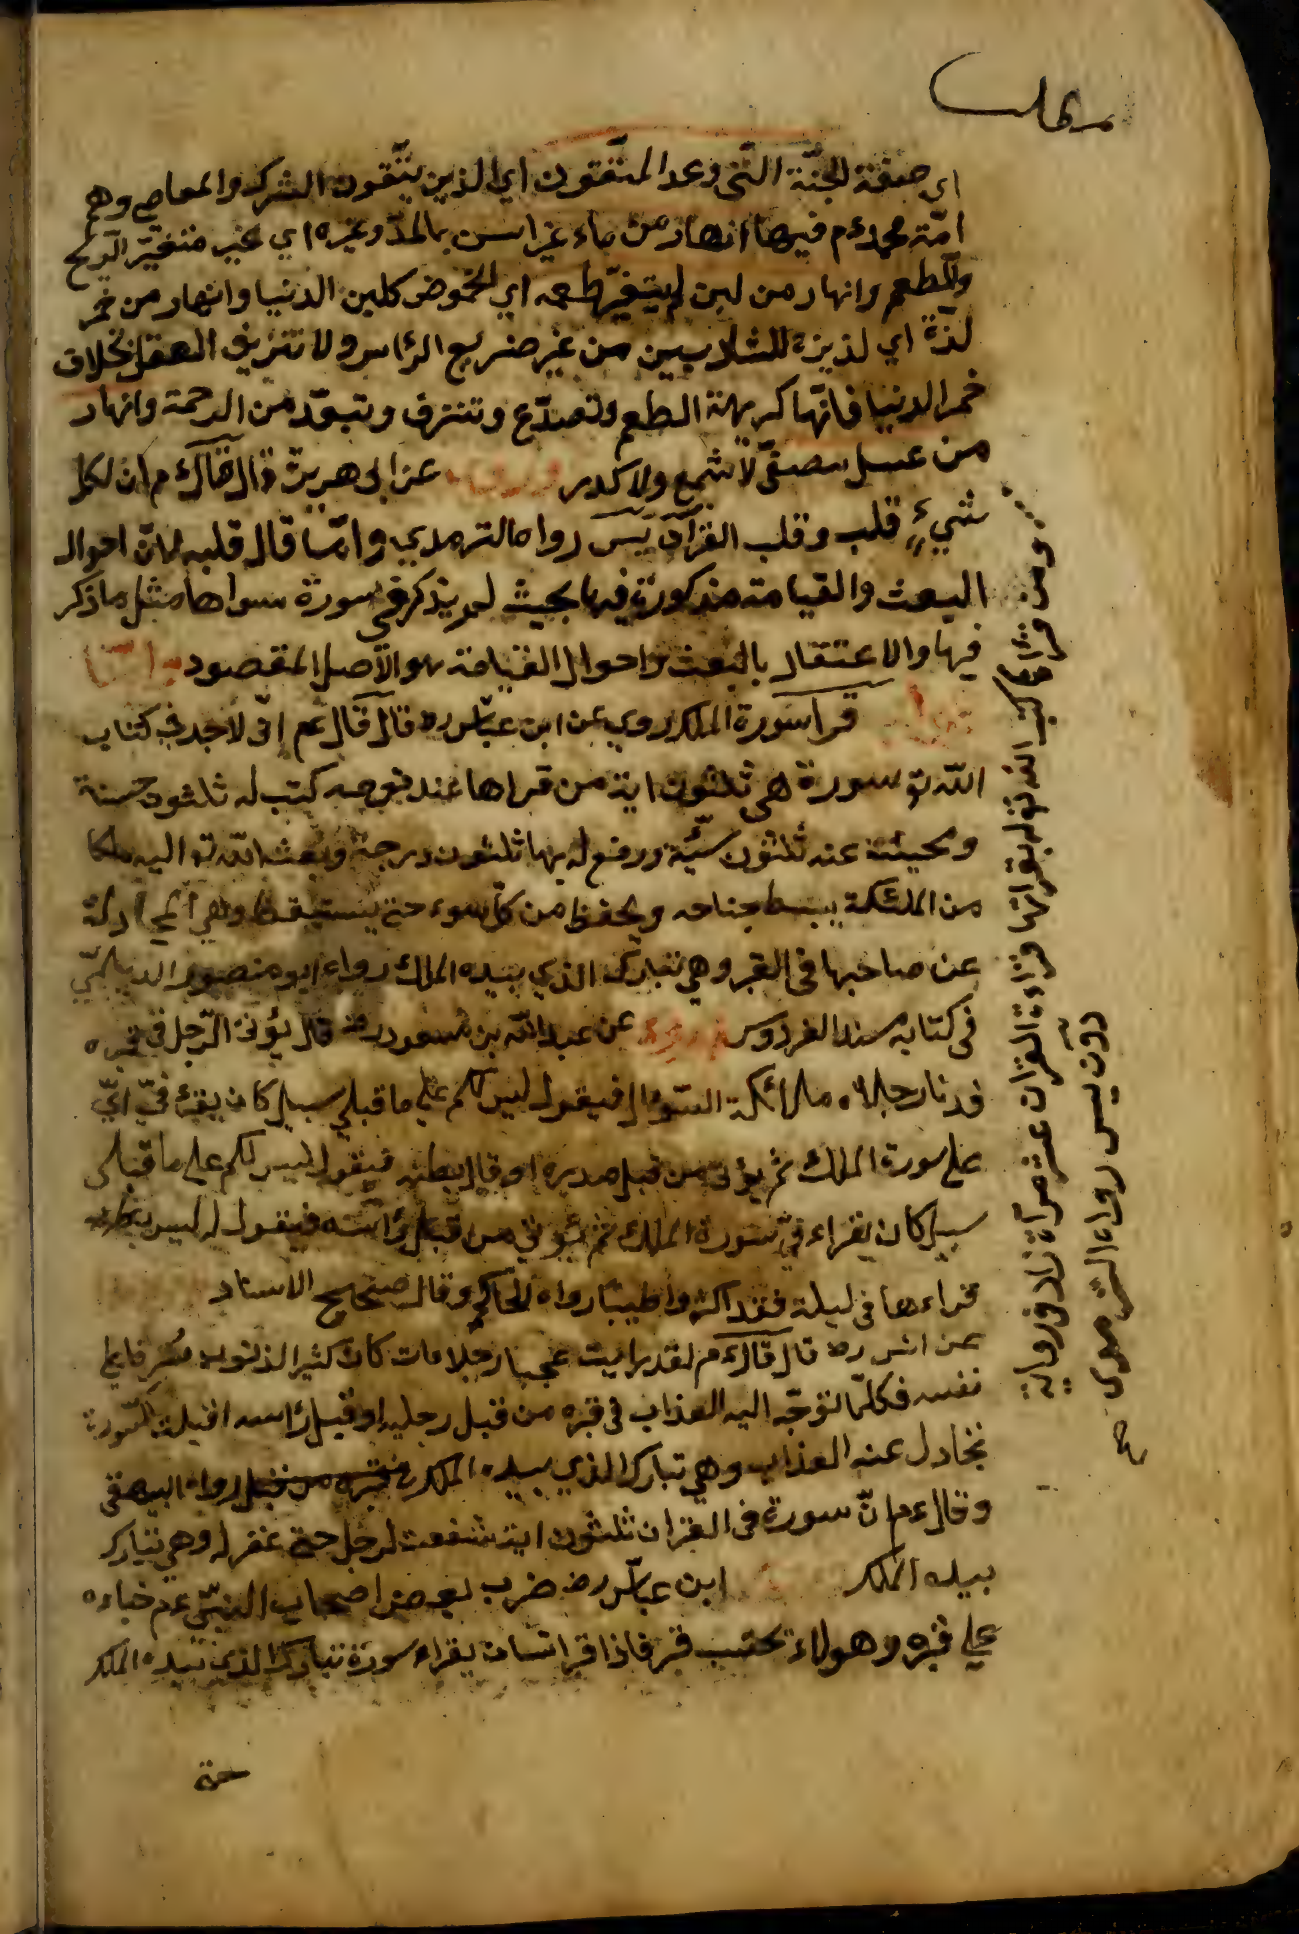 اي صفة الجنّة التّى وعد المتّقون اي الذين يتّقون الشرك والمعاصى وهم
امّة محمد عم فيها انهار من ماء غير اسن بالمدّ وغيره اي غير متغيّر الرّيح
والطعم وانهار من لبن لم يتغيّر طعمه اي الحموض كلبن الدنيا وانهار من خمر
لذّة اي لذيذة للشاربين من غير ضريع الرّاس ولا تنزيف العقل بخلاف
خمر الدنيا فانّها كريهة الطعم وتصدّع وتنزف وتبعّد من الرحمة وانهار
من عسل مصفّى لا شمع ولا كدر وروى عن ابى هريرة قال قال عم ان لكل
شيء قلب وقلب القرآن يس رواه الترمدي وانّما قال قلبه لانّ احوال
البعث والقيامة مذكورة فيها بحيث لم يذكر في سورة سواها مثل ما ذكر
فيها والاعتقاد بالبعث واحوال القيامة هو الاصل المقصود
قرا سورة الملك روي عن ابن عبّاس رض قال قال عم انّى لاجد في كتاب
اللّه تع سورة هي ثلثون اية من قراها عند نومه كتب له ثلثون حسنة
ومحيت عنه ثلثون سيّئة ورفع له بها ثلثون درجة وبعث اللّه تع اليه ملكا
من الملئكة يبسط جناحه ويحفظ من كلّ سوء حتى يستيقظ وهي المجادلة
عن صاحبها فى القبر وهي تبارك الذي بيده الملك رواه ابو منصور الديلميّ
في كتابه مسند الفردوس وروى عن عبد اللّه بن مسعود رض قال يؤتى الرّجل في قبره
رجلاه ملائكة السّؤال فيقول ليس لكم على ما قبلي سبيل كان يقرء فيّ
على سورة الملك ثم يؤتى من قبل صدره او قال بطنه فيقول ليس لكم على ما قبلى
سبيل كان يقراء فيّ سورة الملك ثم يؤتى من قبل راسه فيقول له ليس
قراءها في ليلة فقد اكثر واطيب رواه الحاكم وقال صحيح الاسناد
عن انس رض قال قال عم لقد رايت عجبا رجلا مات كان كثير الذنوب مسرفا على
نفسه فكلّما توجّه اليه العذاب فى قبره من قبل رجليه او قبل راسه اقبلت السّورة
تجادل عنه العذاب وهي تبارك الذي بيده الملك رواه البيهقى
وقال عم انّ سورة فى القران ثلثون اية شفعت لرجل حتى غفر له وهي تبارك
بيده الملك ابن عبّاس رض ضرب بعض اصحاب النبيّ عم خباءه
على قبره وهو لا يحتسب قبر فاذا فيه انسان يقراء سورة تبارك الذي بيده الملك
حتى
ومن قراء كتب اللّه له بقراتها قراءة القران عشر مرّات زاد في رواية
دون يس رواه الترمدى